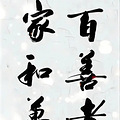 百善孝
家和